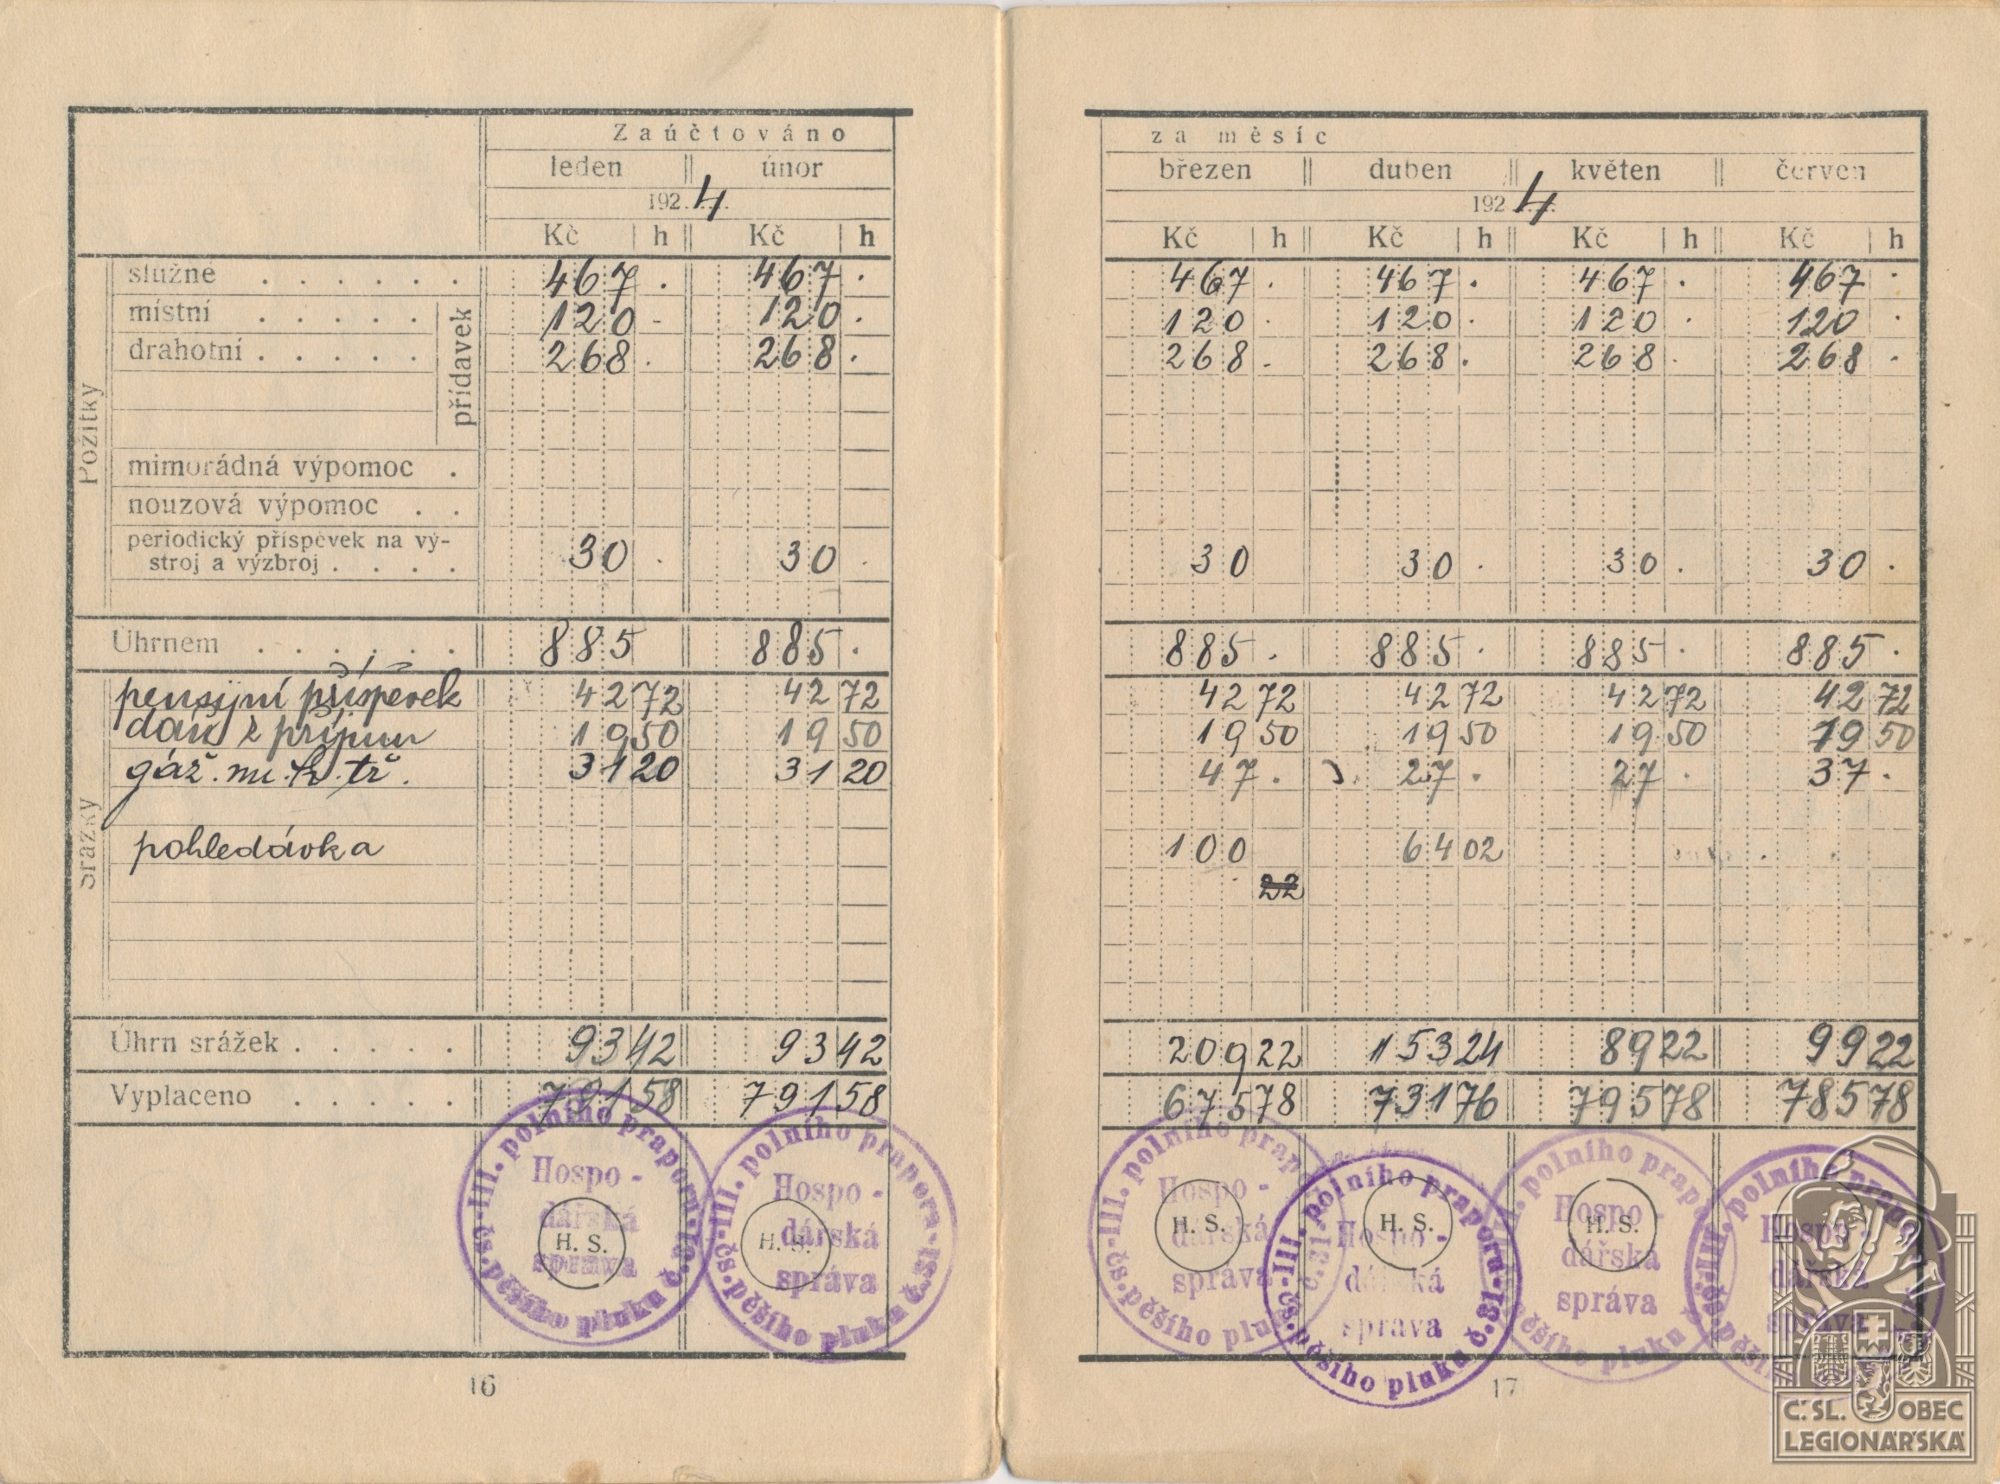 Zaúčtováno za měsíc
leden || únor březen || duben || květen || červen
192 4. 192 4.
Kč | h || Kč | h Kč | h || Kč | h || Kč | h || Kč | h
Požitky
přídavek
služné . . . . . . 467 . 467 . 467 . 467 . 467 . 467 .
místní . . . . . 120 - 120 . 120 . 120 . 120 . 120 .
drahotní . . . . . 268 . 268 . 268 . 268 . 268 . 268 .
mimořádná výpomoc .
nouzová výpomoc . .
periodický příspěvek na vý-
stroj a výzbroj . . . . 30 . 30 . 30 30 . 30 . 30 .
Úhrnem . . . . . . 885 885 . 885 . 885 . 885 . 885 .
Srážky
pensijní příspěvek 42 72 42 72 42 72 42 72 42 72 42 72
daň z příjmu 19 50 19 50 19 50 19 50 19 50 19 50
gáž. m. k. tř. 31 20 31 20 47 . 27 . 27 . 37 .
pohledávka 100 64 02
22
Úhrn srážek . . . . . 93 42 93 42 209 22 153 24 89 22 99 22
Vyplaceno . . . . . 791 58 791 58 675 78 731 76 795 78 785 78
čs. pěšího pluku č. 31 - III. polního praporu
Hospo-
dářská
správa
H. S.
čs. pěšího pluku č. 31 - III. polního praporu
Hospo-
dářská
správa
H. S.
čs. pěšího pluku č. 31 - III. polního praporu
Hospo-
dářská
správa
H. S.
čs. pěšího pluku č. 31 - III. polního praporu
Hospo-
dářská
správa
H. S.
polního praporu
pěšího pluku č.
Hospo-
dářská
správa
H. S.
čs. pěšího III. polního praporu
Hospo-
dářská
správa
16
17
Č. SL. OBEC
LEGIONÁŘSKÁ